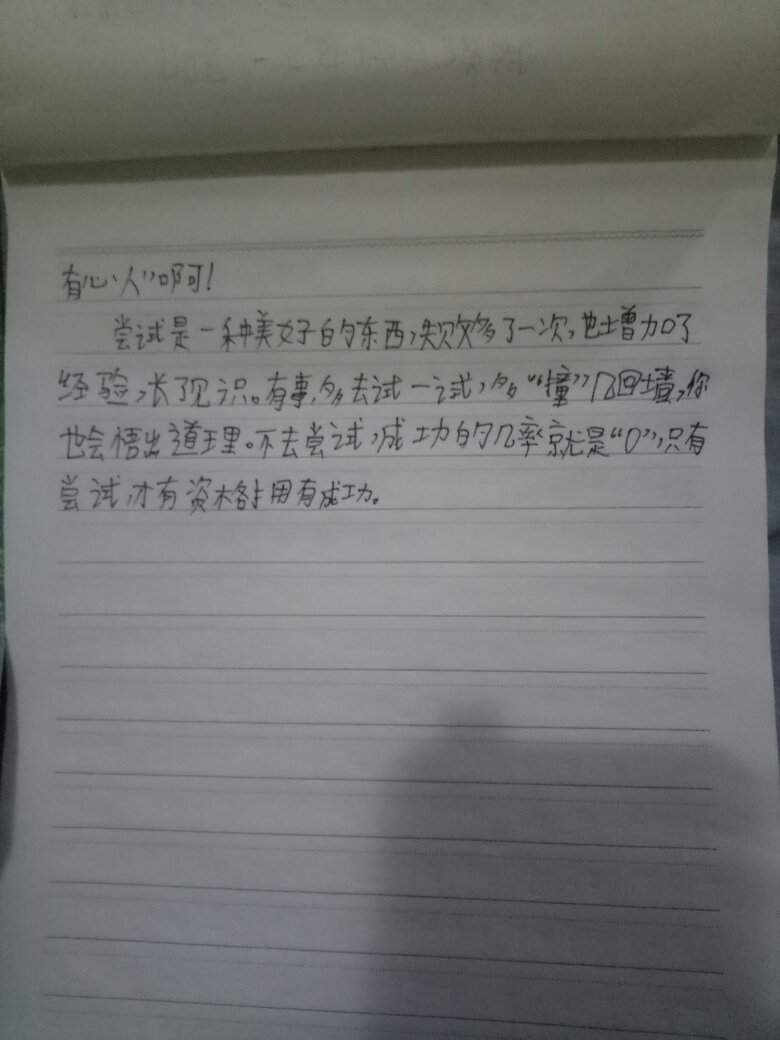 有心“人”啊!
尝试是一种美好的东西,失败多了一次,也增加了
经验,长了见识。有事,多去试一试,多“撞”几回墙,你
也会悟出道理。不去尝试,成功的几率就是“0”,只有
尝试,才有资格拥有成功。